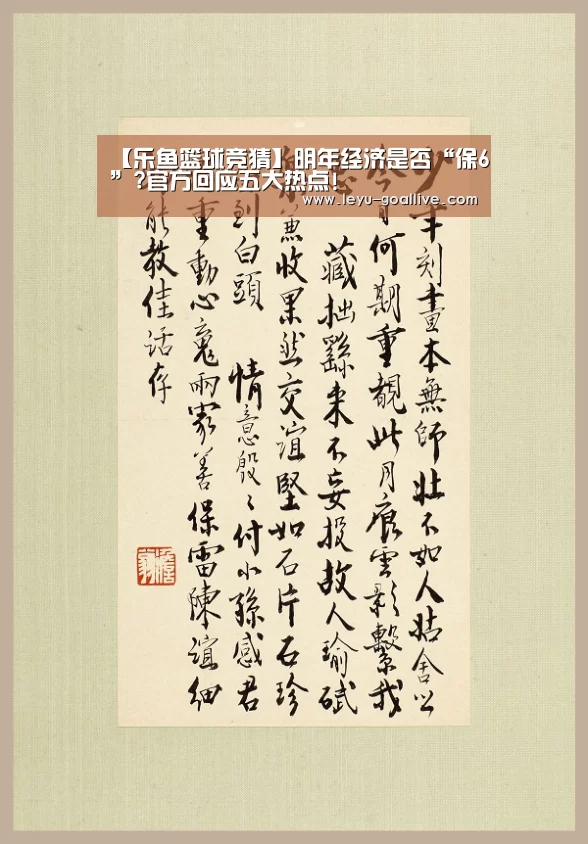 【乐鱼篮球竞猜】明年经济是否“保6
”?官方回应五大热点!
www.leyu-goallive.com
少年刻畫本無師壯不如人姑舍之
今日何期重覩此月痕雲影繫我
思
藏拙繇来不妄投故人瑜珷
兼收果然交誼堅如石片石珍
到白頭 情意殷〻付小孫感君
重動心魂兩家善保雷陳誼細
能教佳話存